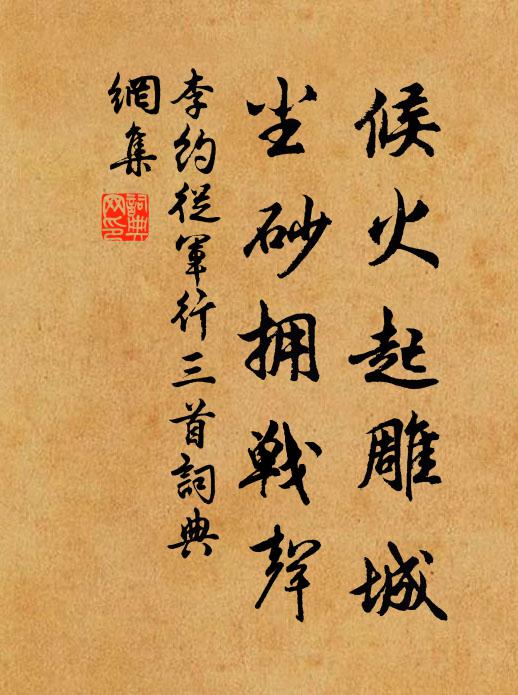 候火起雕城
尘砂拥戦聲
李约從軍行三首詞典
網集
詞典
网印